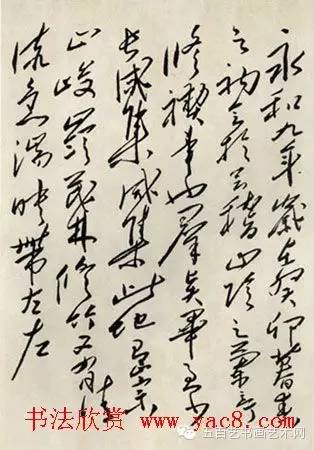 永和九年歲在癸卯暮春
之初会於会稽山陰之蘭亭
修禊事也羣賢畢至少
長咸集咸集此地有崇
山峻嶺茂林修竹又有清
流急湍映帶左右
书法欣赏 www.yac8.com
五百艺书画艺术网